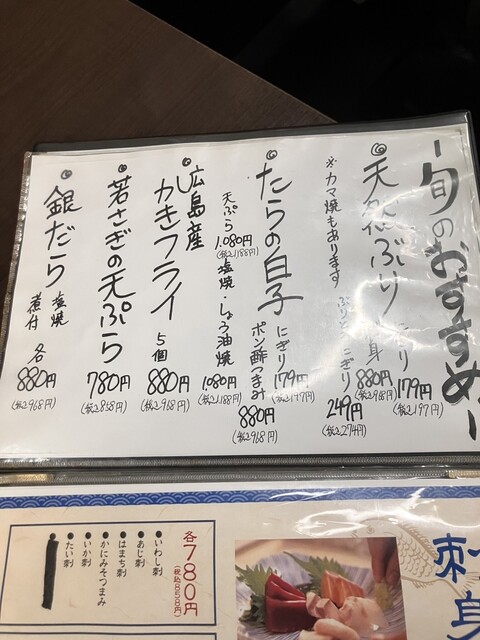 旬のおすすめ
天然ぶり にぎり 179円
(税込197円)
刺身 880円
(税込968円)
※カマ焼もあります
ぶりとろにぎり 249円
(税込274円)
たらの白子 にぎり 179円
(税込197円)
ポン酢つまみ 880円
(税込968円)
天ぷら 1,080円
(税込1,188円)
塩焼・しょう油焼 1,080円
(税込1,188円)
広島産
かきフライ 5個 880円
(税込968円)
若さぎの天ぷら 780円
(税込858円)
銀だら 塩焼 煮付 各 880円
(税込968円)
刺身
各780円
(税込858円)
いわし刺
あじ刺
はまち刺
かにみそつまみ
いか刺
たい刺